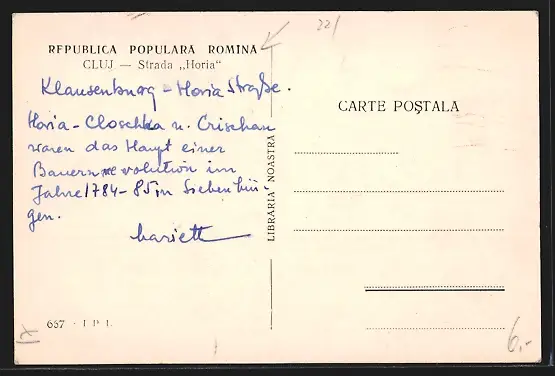 22/
REPUBLICA POPULARĂ ROMÎNĂ
CLUJ — Strada „Horia"
Klausenburg - Horia Straße.
Horia - Closchka u. Crischan
waren das Haupt einer
Bauernrevolution im
Jahre 1784-85 in Siebenbür-
gen.
CARTE POŞTALA
LIBRARIA NOASTRĂ
667 · I P L
6,-